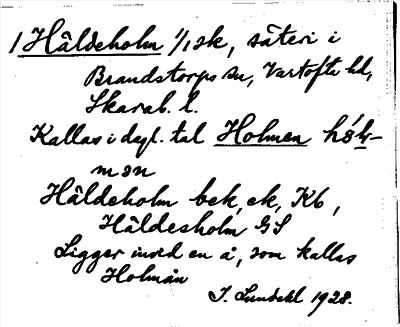 1 Håldeholm 1/1 sk, säteri i
Brandstorps sn, Vartofta hd,
Skarab. l.
Kallas i dagl. tal Holmen hɔ́ɬ-
mən
Håldeholm bek, ek, Kb,
Håldesholm GS
Ligger invid en å, som kallas
Holmån
I. Lundahl 1928.